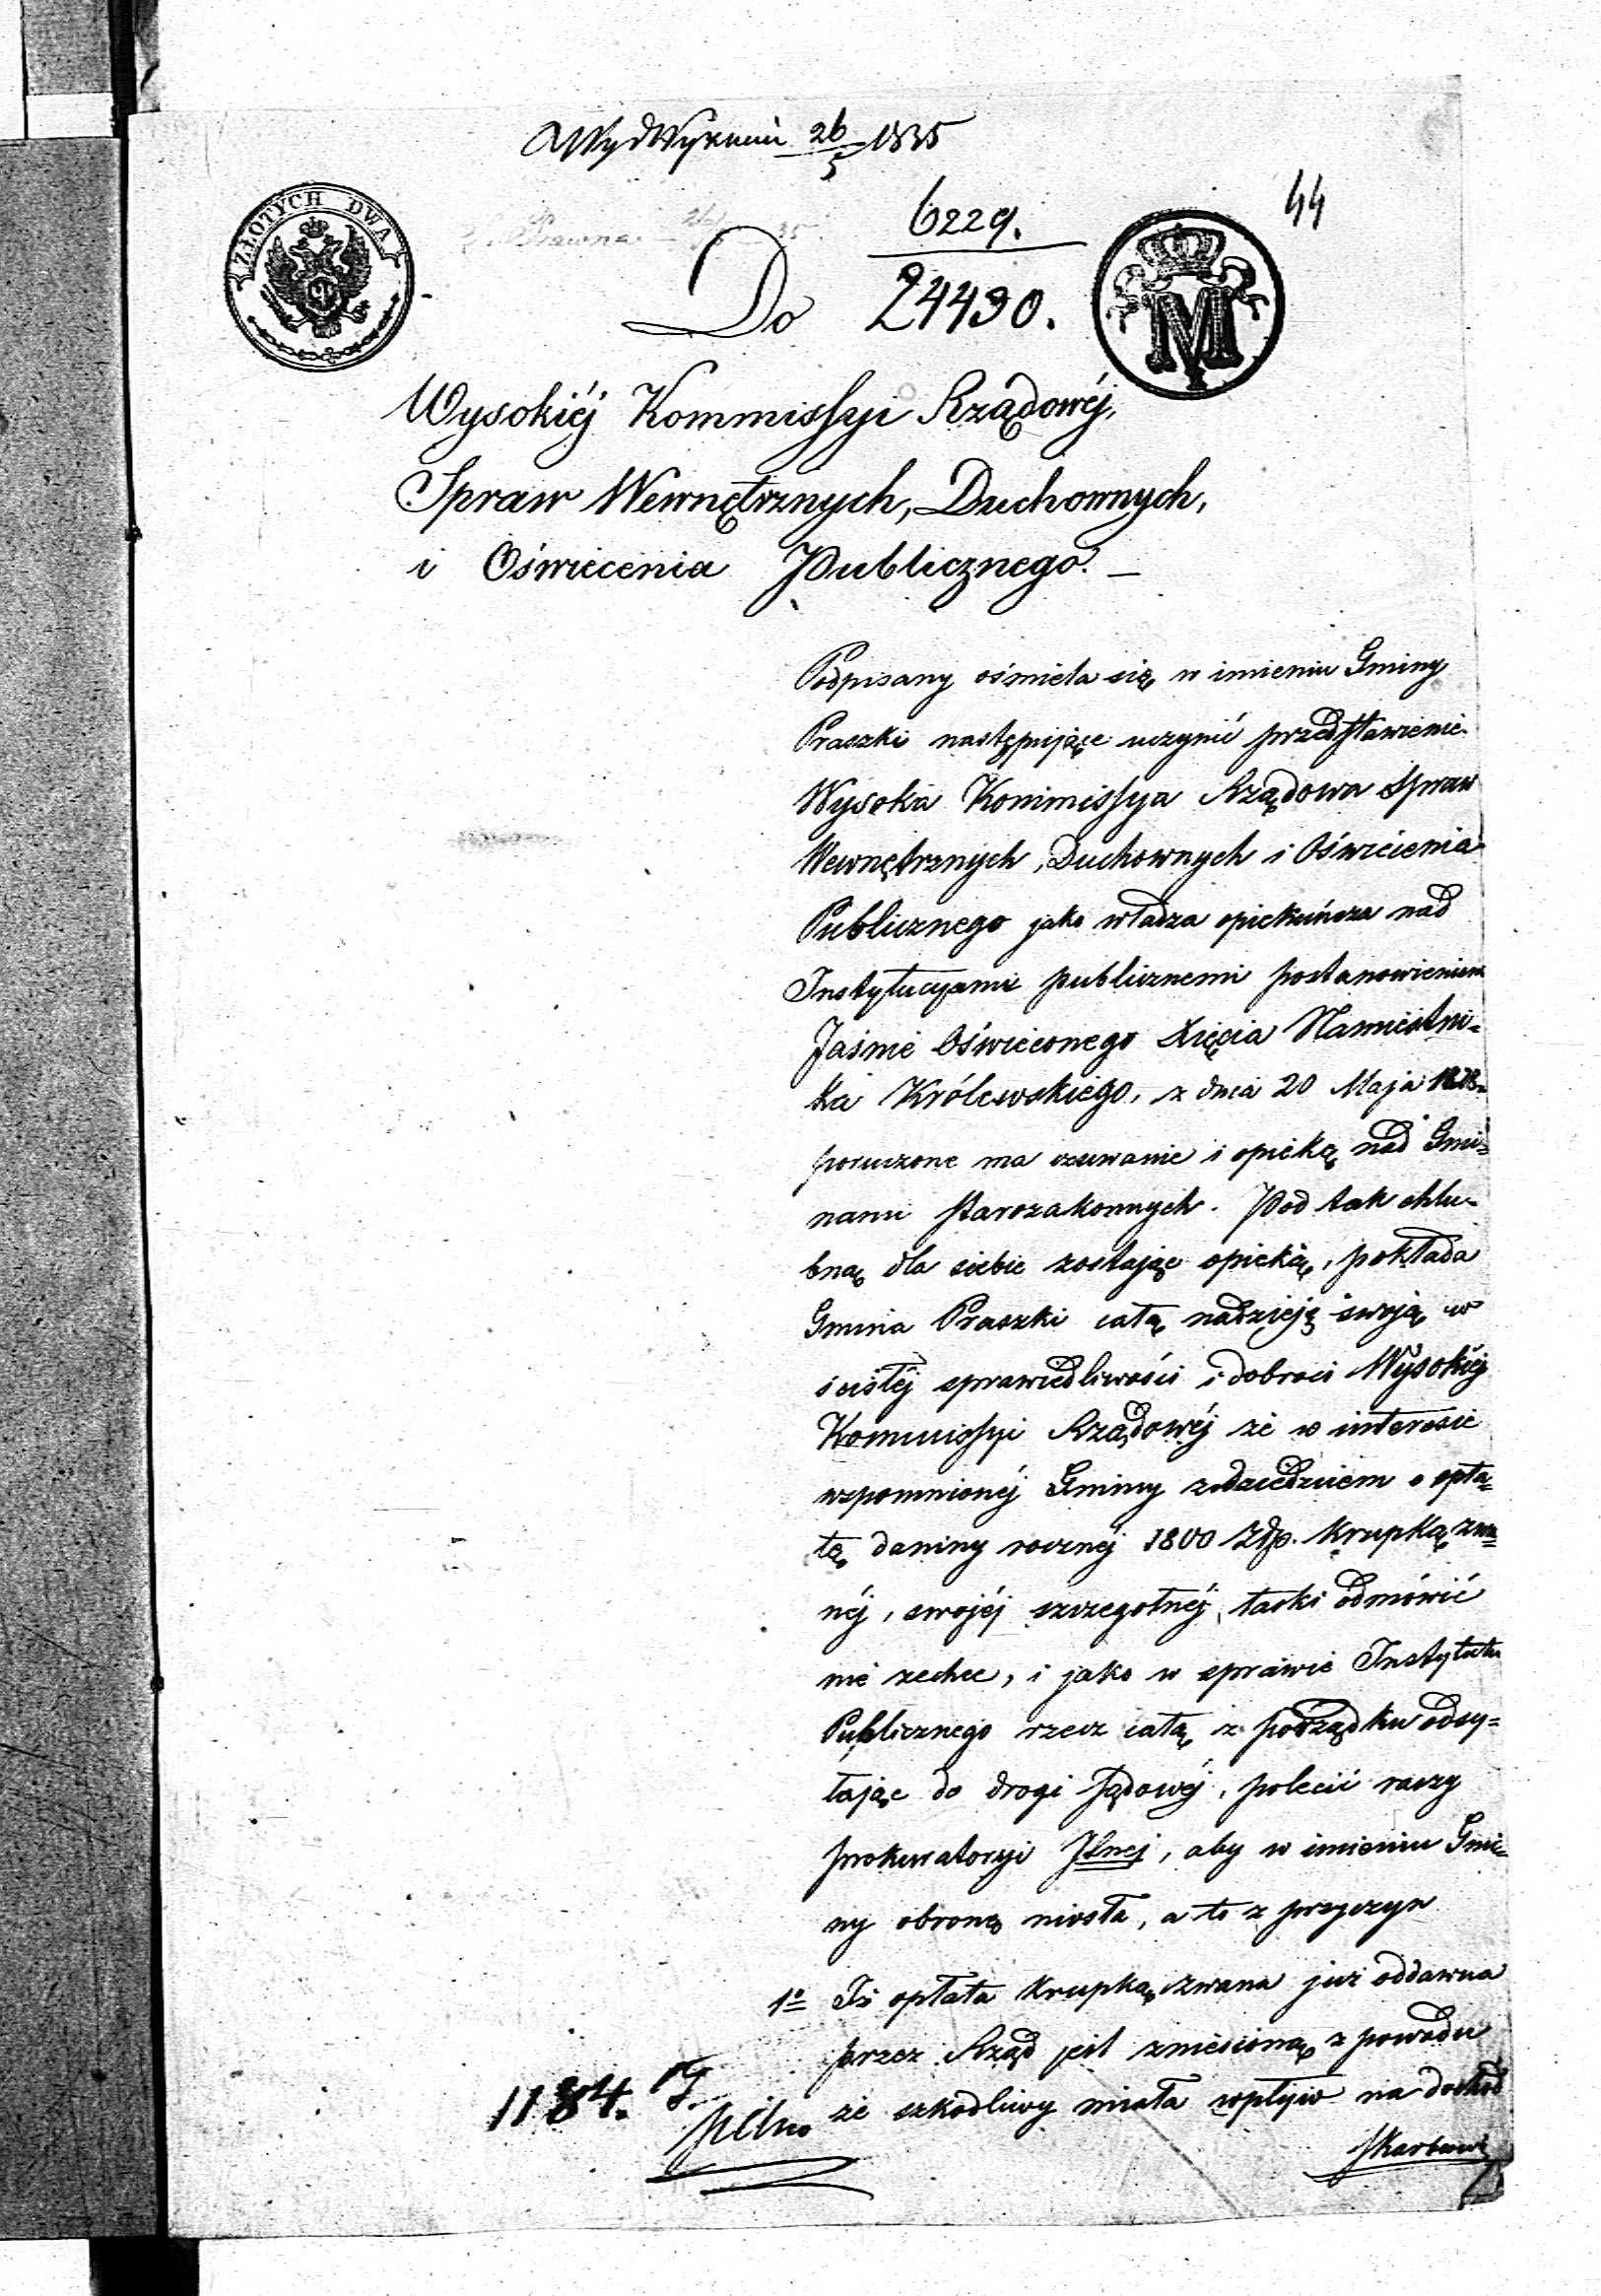 26/5 1835
44
ZŁOTYCH DWA
Prawna
6229.
24430.
Do
M
Wysokiéj Kommissyi Rządowéj,
Spraw Wewnętrznych, Duchownych,
i Oświecenia Publicznego. —
Podpisany ośmiela się w imieniu Gminy
Praszki następujące uczynić przedstawienie.
Wysoka Kommissya Rządowa Spraw
Wewnętrznych, Duchownych i Oświecenia
Publicznego jako władza opiekuńcza nad
Instytucyami publicznemi postanowieniem
Jaśnie Oświeconego Xięcia Namiestni-
ka Królewskiego, z dnia 20 Maja
poruczone ma czuwanie i opiekę nad Gmi-
nami starozakonnych. Pod tak chlu-
bną dla siebie zostając opieką, pokłada
Gmina Praszki całą nadzieję swoją w
ścisłéj sprawiedliwości i dobroci Wysokiéj
Kommissyi Rządowéj że w interesie
wspomnionéj Gminy z dziedzicem o opła-
tę daniny rocznéj 1800 Złp. Krupką zwa-
néj, swojéj szczegolnéj łaski odmówić
nie zechce, i jako w sprawie Instytutu
Publicznego rzecz całą z porządku odsy-
łając do drogi sądowéj, polecić raczy
prokuratoryi Jlnej, aby w imieniu Gmi-
ny obronę niosła, a to z przyczyn
1o Iż opłata Krupką zwana już oddawna
przez Rząd jest zniesioną z powodu
że szkodliwy miała wpływ na dochód
Skarbowy
1184.